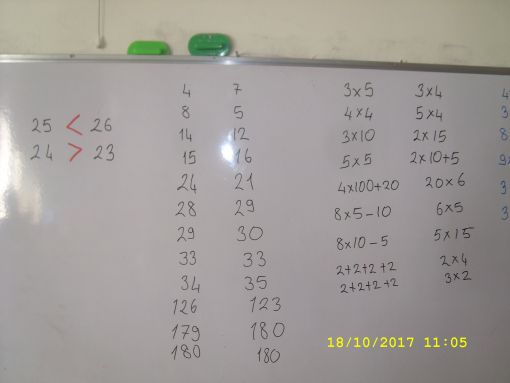 25 < 26
24 > 23
4 7
8 5
14 12
15 16
24 21
28 29
29 30
33 33
34 35
126 123
179 180
180 180
3×5 3×4
4×4 5×4
3×10 2×15
5×5 2×10+5
4×100+20 20×6
8×5-10 6×5
8×10-5 5×15
2+2+2+2 2×4
2+2+2+2 3×2
4
3
8
9×
3
3
18/10/2017 11:05